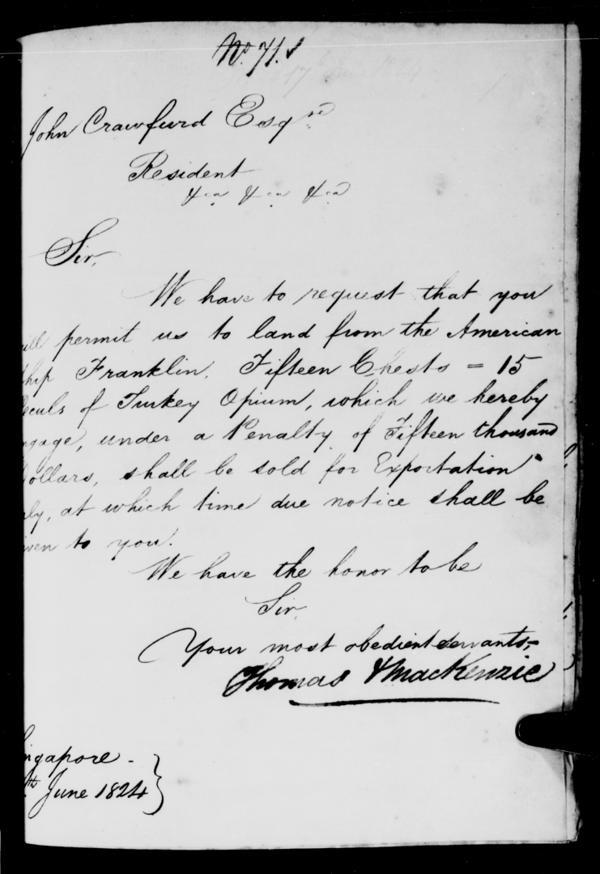 No. 71.
John Crawfurd Esqre
Resident
&ca &ca &ca
Sir,
We have to request that you
ill permit us to land from the American
hip Franklin. Fifteen Chests = 15
eculs of Turkey Opium, which we hereby
ngage, under a Penalty of Fifteen thousand
Dollars, shall be sold for Exportation
nly, at which time due notice shall be
iven to you.
We have the honor to be
Sir
Your most obedient servants,
Thomas & MacKenzie
ingapore -
th June 1824